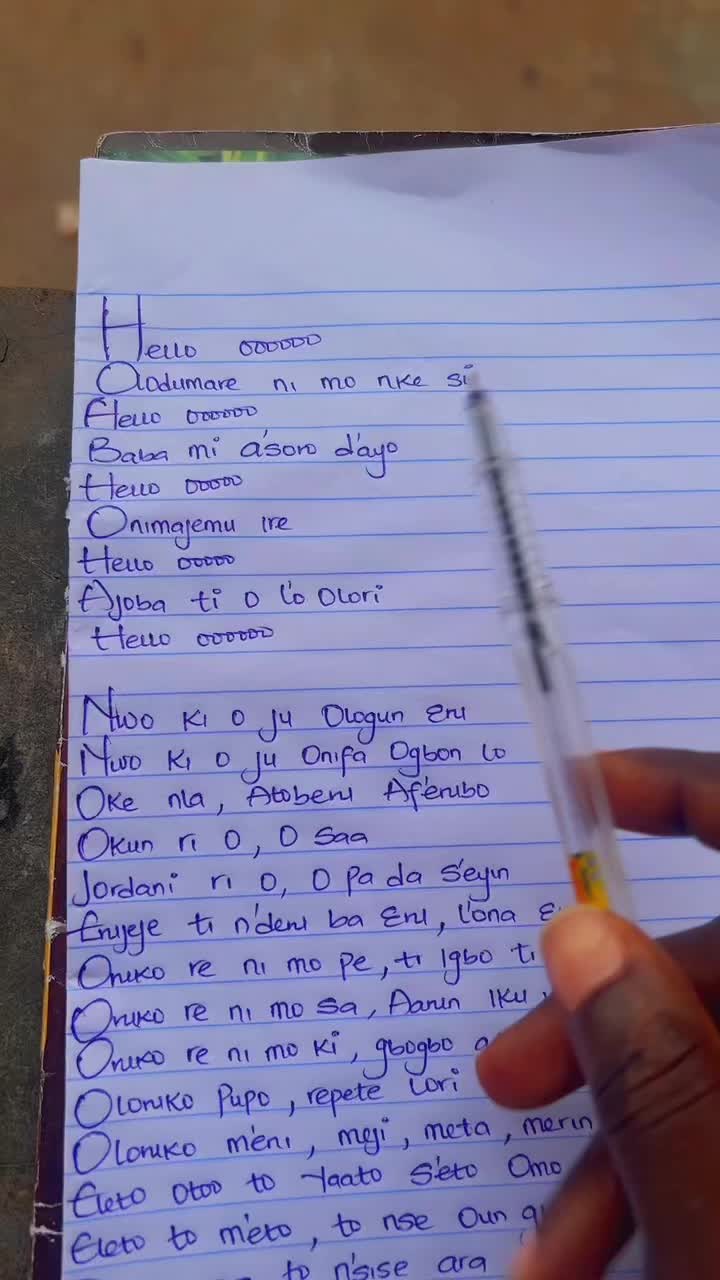 Hello oooooo
Olodumare ni mo nke si
Hello oooooo
Baba mi a'soro d'ayo
Hello ooooo
Onimajemu ire
Hello ooooo
Ajoba ti o l'o Olori
Hello oooooo
Nwo ki o ju Ologun Eru
Nwo ki o ju Onifa Ogbon lo
Oke nla, Atoberu Af'erubo
Okun ri O, O saa
Jordani ri O, O pa da s'eyin
Erujeje ti n'deru ba Eru, l'ona
Oruko re ni mo pe, ti Igbo ti
Oruko re ni mo sa, Aarin Iku
Oruko re ni mo ki, gbogbo
Oloruko pupo, repete lori
Oloruko m'eni, meji, meta, merin
Eleto otoo to Yaato s'eto Omo
Eleto to m'eto, to nse Oun
to n'sise ara